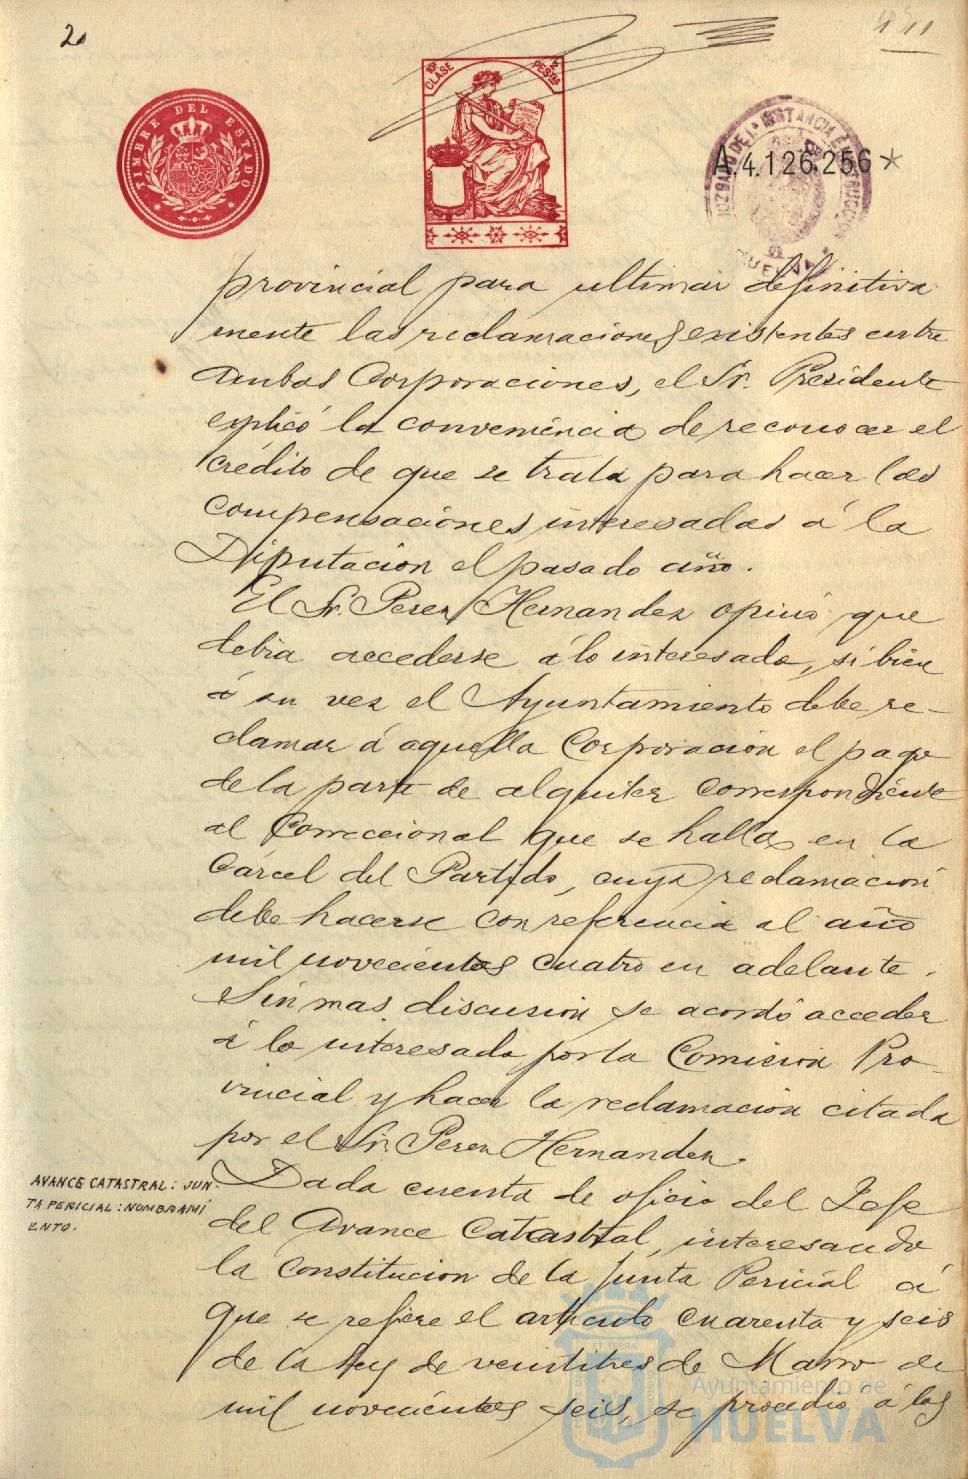 20
TIMBRE DEL ESTADO
10ª CLASE
2 PESTAS
JUZGADO DE 1ª INSTANCIA E INSTRUCCION
HUELVA
A.4.126.256*
provincial para ultimar definitiva
mente las reclamaciones existentes entre
ambas Corporaciones, el Sr. Presidente
explicó la conveniencia de reconocer el
crédito de que se trata para hacer las
compensaciones interesadas á la
Diputación el pasado año.
El Sr. Perez Hernandez opinó que
debia accederse á lo interesado, si bien
á su vez el Ayuntamiento debe re-
clamar á aquella Corporación el pago
de la parte de alquiler correspondiente
al Correccional que se halla en la
Cárcel del Partido, cuya reclamación
debe hacerse con referencia al año
mil novecientos cuatro en adelante.
Sin mas discusión se acordó acceder
á lo interesado por la Comision Pro-
vincial y hacer la reclamación citada
por el Sr. Perez Hernandez.
AVANCE CATASTRAL: JUN-
TA PERICIAL: NOMBRAMI
ENTO.
Dada cuenta de oficio del Jefe
del Avance Catastral, interesando
la constitucion de la Junta Pericial á
que se refiere el articulo cuarenta y seis
de la Ley de veintitres de Marzo de
mil novecientos seis, se procedió á los
Ayuntamiento de
HUELVA